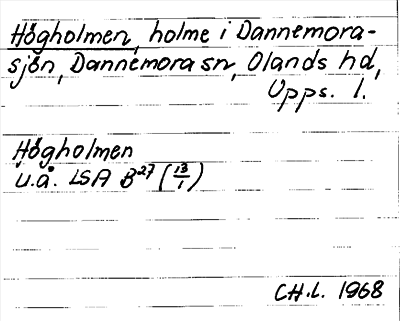 Högholmen, holme i Dannemora-
sjön, Dannemora sn, Olands hd,
Upps. l.
Högholmen
u.å. LSA B27 (13/1)
CH.L. 1968